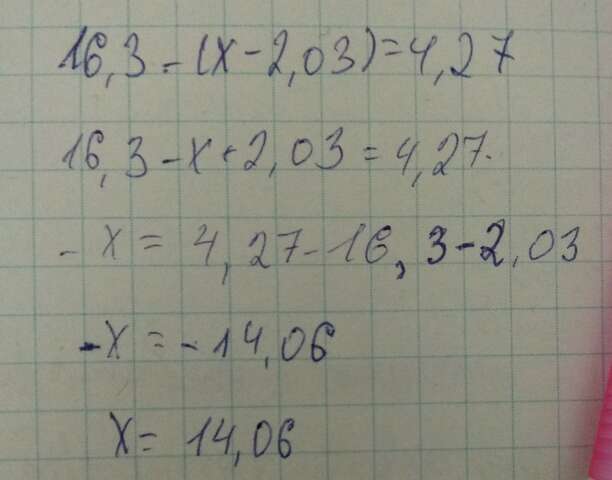 16,3-(x-2,03)=4,27
16,3-x+2,03=4,27.
-x=4,27-16,3-2,03
-x=-14,06
x=14,06